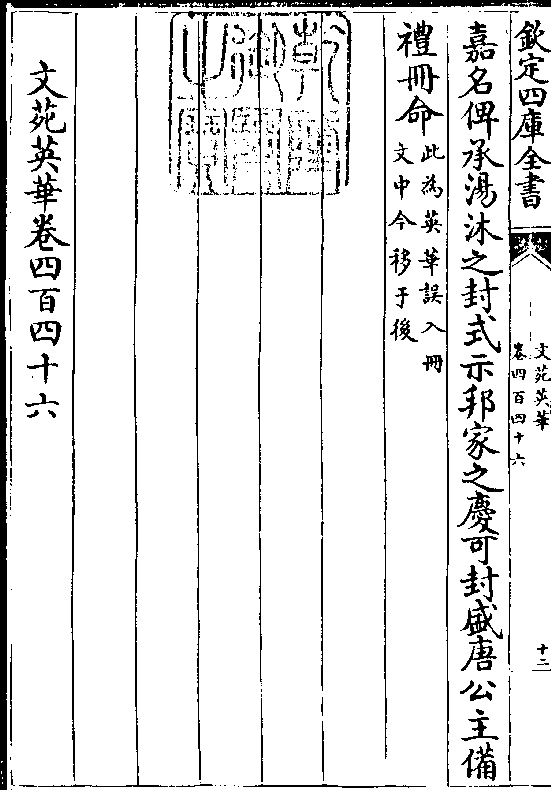 欽定四庫全書
文苑英華
卷四百四十六
十二
嘉名俾承湯沐之封式示邦家之慶可封盛唐公主備
禮冊命此為英華誤入冊
文中今移于後
乾隆御覽之寶
文苑英華卷四百四十六